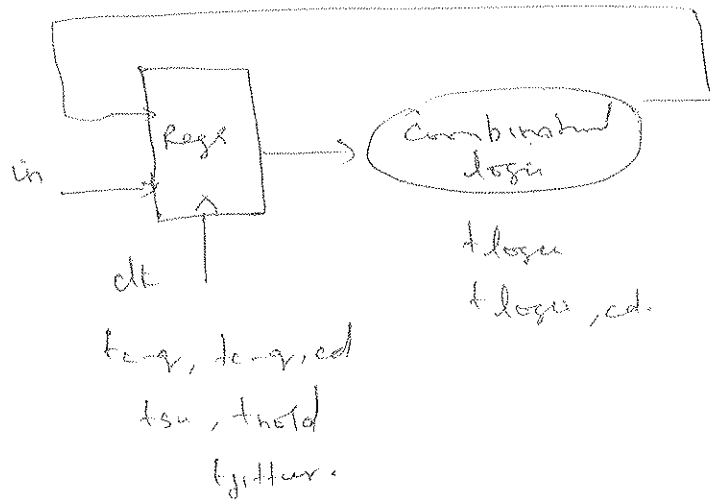 Regs
Combinational
logic
in
clk
t logic
t logic, cd.
tc-q, tc-q, cd
tsu, thold
tjitter.